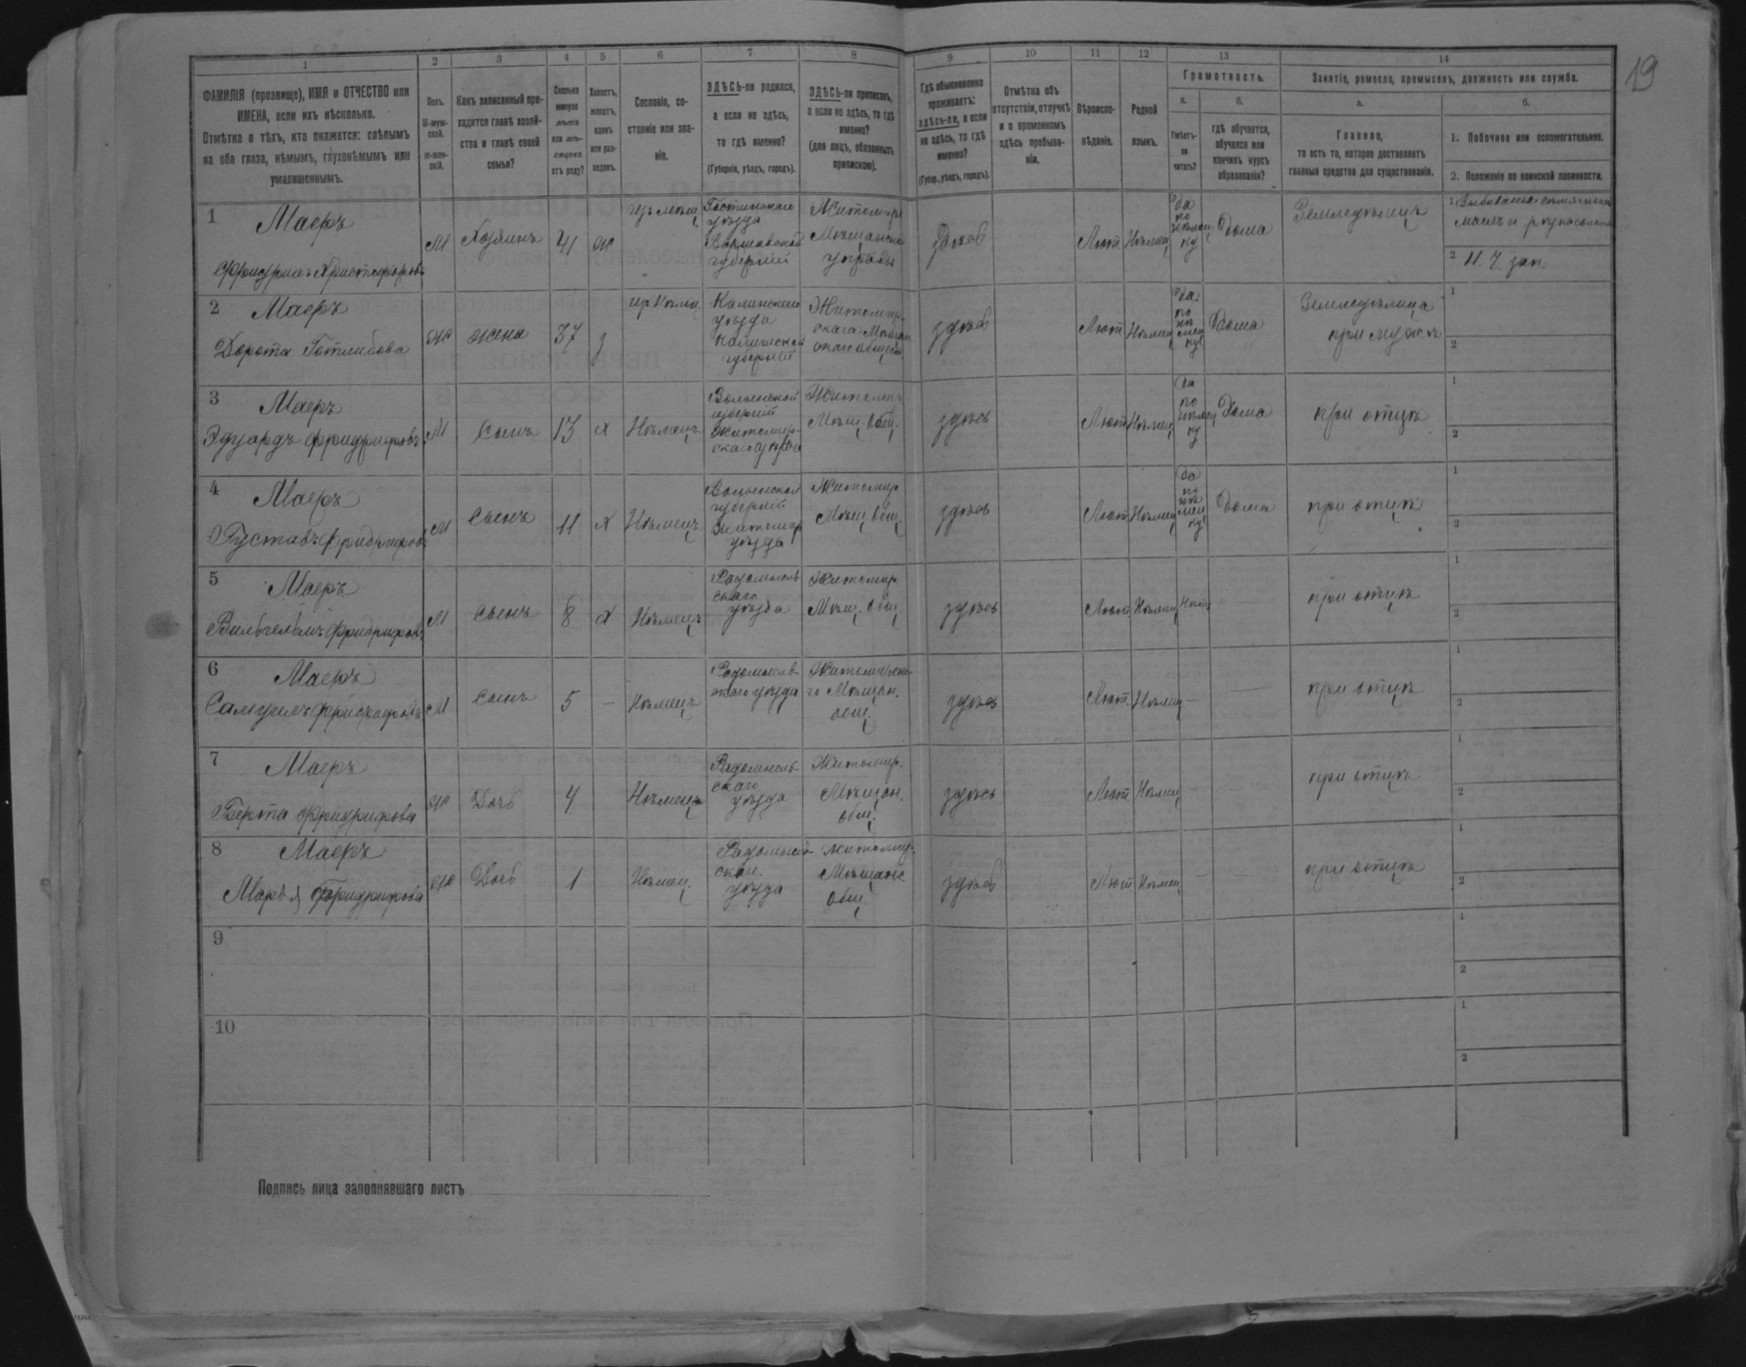 19
1 2 3 4 5 6 7 8 9 10 11 12 13 14
ФАМИЛІЯ (прозвище), ИМЯ и ОТЧЕСТВО или
ИМЕНА, если ихъ нѣсколько.
Отмѣтка о тѣхъ, кто окажется: слѣпымъ
на оба глаза, нѣмымъ, глухонѣмымъ или
умалишеннымъ.
Полъ.
М-муж-
ской.
Ж-жен-
скій.
Какъ записанный при-
ходится главѣ хозяй-
ства и главѣ своей
семьи?
Сколько
минуло
лѣтъ
или мѣ-
сяцевъ
отъ роду?
Холостъ,
женатъ,
вдовъ
или раз-
веденъ.
Сословіе, со-
стояніе или зва-
ніе.
ЗДѢСЬ-ли родился,
а если не здѣсь,
то гдѣ именно?
(Губернія, уѣздъ, городъ).
ЗДѢСЬ-ли приписанъ,
а если не здѣсь, то гдѣ
именно?
(для лицъ, обязанныхъ
припискою).
Гдѣ обыкновенно
проживаетъ:
здѣсь-ли, а если
не здѣсь, то гдѣ
именно?
(Губер., уѣздъ, городъ).
Отмѣтка объ
отсутствіи, отлучкѣ
и о временномъ
здѣсь пребыва-
ніи.
Вѣроиспо-
вѣданіе.
Родной
языкъ.
Грамотность.
а.
Умѣетъ-
ли
читать?
б.
гдѣ обучается,
обучался или
кончилъ курсъ
образованія?
Занятіе, ремесло, промыселъ, должность или служба.
а.
Главное,
то есть то, которое доставляетъ
главныя средства для существованія.
б.
1. Побочное или вспомогательное.
2. Положеніе по воинской повинности.
1 Маеръ
Фридрихъ Христофоровъ
М Хозяинъ 41 Ж
Гостинскаго
уѣзда
Варшавской
губерніи
Житомир
Мѣщанск
управы
здѣсь Лют Нѣмец
да
по
нѣмец
ку
Дома Земледѣлецъ
1
2 И. 7. зап.
2 Маеръ
Дорота Готлибова
Ж жена 37 з
Калишскаго
уѣзда
Калишской
губерніи
Житомир-
скаго Мѣщан
скаго общест
здѣсь Лют Нѣмец
да
по
нѣ
мец
ку
Дома
Земледѣлица
при мужѣ
1
2
3 Маеръ
Эдуардъ Фридриховъ
М сынъ 13 х Нѣмецъ
Волынской
губерніи
Житомир-
скаго уѣзда
Житомир
Мѣщ. Общ.
здѣсь Лют Нѣмец
да
по
нѣмец
ку
Дома при отцѣ
1
2
4 Маеръ
Густавъ Фридриховъ
М сынъ 11 х Нѣмецъ
Волынской
губерніи
Житомир
уѣзда
Житомир
Мѣщ. Общ.
здѣсь Лют Нѣмец
да
по
нѣ
мец
ку
Дома при отцѣ
1
2
5 Маеръ
Вильгельмъ Фридриховъ
М сынъ 8 х Нѣмецъ
Радомысль
скаго
уѣзда
Житомир.
Мѣщ. Общ.
здѣсь Лют Нѣмец Нѣтъ — при отцѣ
1
2
6 Маеръ
Самуилъ Фридриховъ
М сынъ 5 — Нѣмецъ
Радомысль
скаго уѣзда
Житомирска-
го Мѣщан.
общ.
здѣсь Лют. Нѣмец — — при отцѣ
1
2
7 Маеръ
Берта Фридрихова
Ж Дочь 4 Нѣмецъ
Радомысль
скаго
уѣзда
Житомир.
Мѣщан.
общ.
здѣсь Лют. Нѣмец — — при отцѣ
1
2
8 Маеръ
Марья Фридрихова
Ж Дочь 1 Нѣмец.
Радомысль
скаг.
уѣзда
Житомир.
Мѣщанс.
общ
здѣсь Лют Нѣмец — — при отцѣ
1
2
9
1
2
10
1
2
Подпись лица заполнявшаго листъ